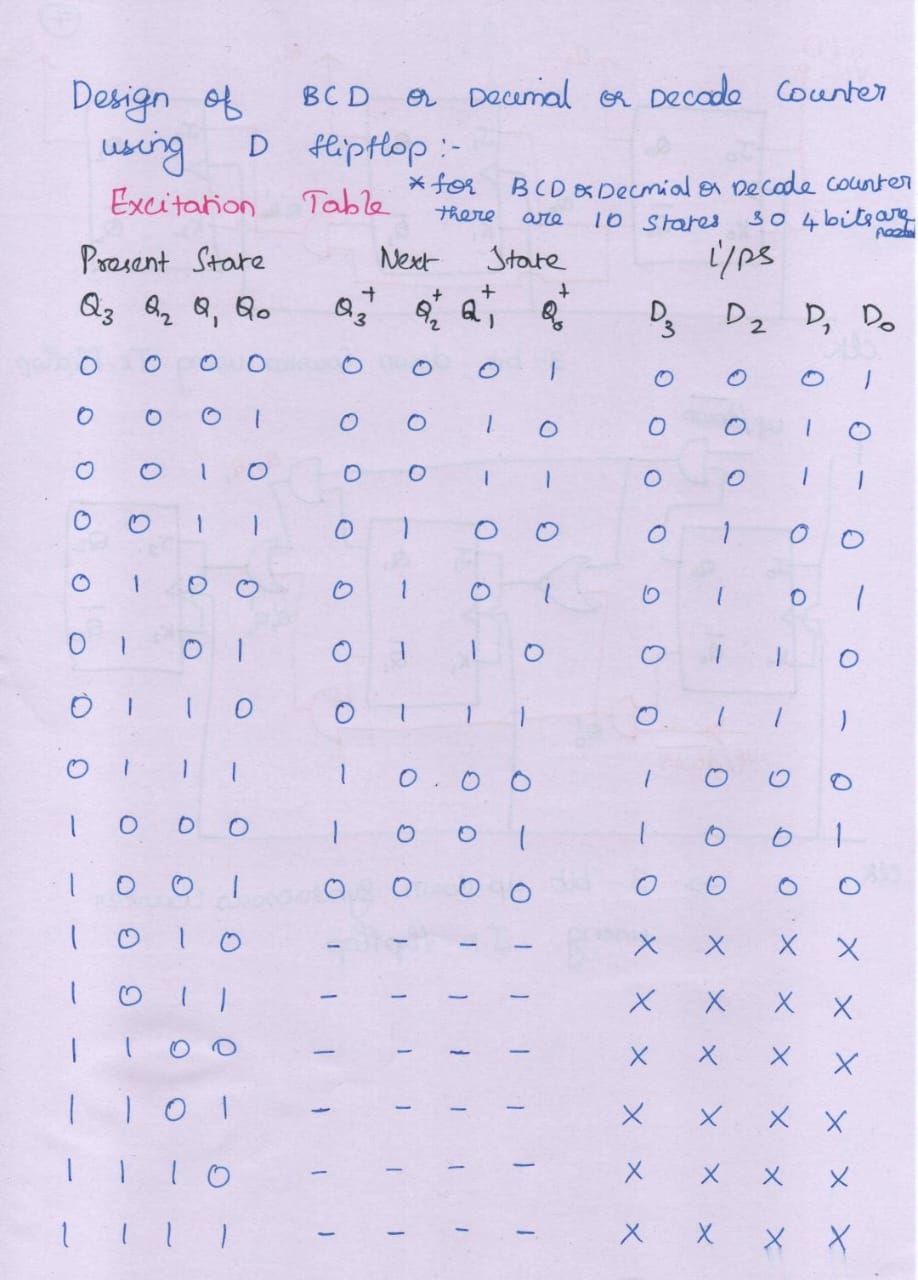 Design of BCD or Decimal or Decade Counter
using D flipflop :-
* for BCD or Decmial or Decade counter
Excitation Table there are 10 states so 4 bits are
Present State Next State i/ps
Q3 Q2 Q1 Q0 Q3+ Q2+ Q1+ Q0+ D3 D2 D1 D0
0 0 0 0 0 0 0 1 0 0 0 1
0 0 0 1 0 0 1 0 0 0 1 0
0 0 1 0 0 0 1 1 0 0 1 1
0 0 1 1 0 1 0 0 0 1 0 0
0 1 0 0 0 1 0 1 0 1 0 1
0 1 0 1 0 1 1 0 0 1 1 0
0 1 1 0 0 1 1 1 0 1 1 1
0 1 1 1 1 0 0 0 1 0 0 0
1 0 0 0 1 0 0 1 1 0 0 1
1 0 0 1 0 0 0 0 0 0 0 0
1 0 1 0 - - - - X X X X
1 0 1 1 - - - - X X X X
1 1 0 0 - - - - X X X X
1 1 0 1 - - - - X X X X
1 1 1 0 - - - - X X X X
1 1 1 1 - - - - X X X X